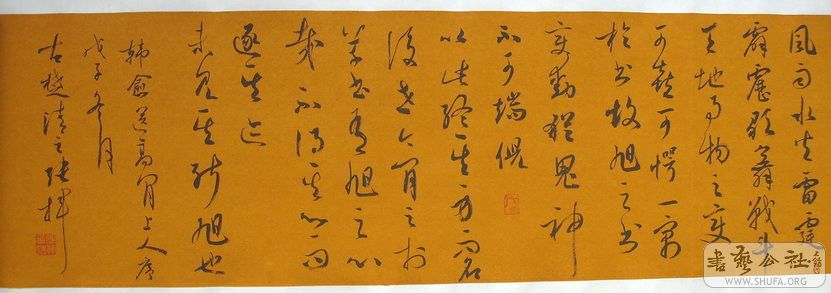 風雨水火雷霆
霹靂歌舞戰鬥
天地事物之變
可喜可愕一寓
於書故旭之書
變動猶鬼神
不可端倪
以此終其身而名
後世今閒之於
草書有旭之心
哉不得其心而
逐其迹
未見其能旭也
韓愈送高閒上人序
戊子冬月
古楚清之張
書藝公社
WWW.SHUFA.ORG